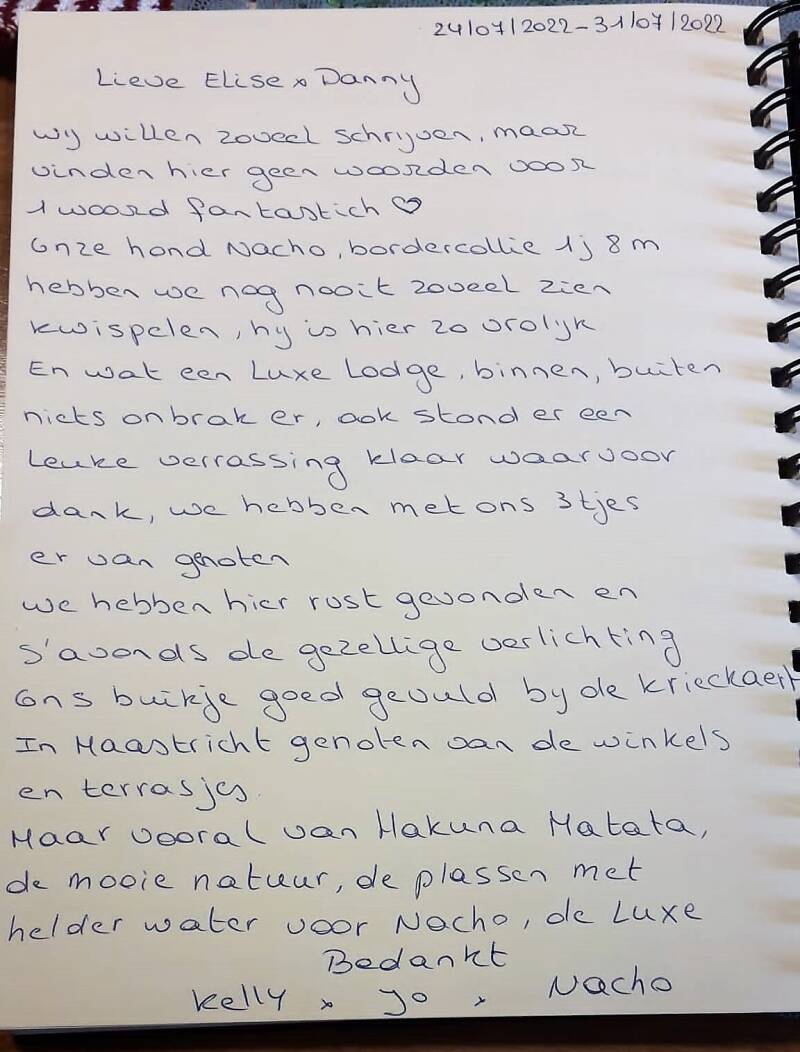 24/07/2022-31/07/2022
Lieve Elise x Danny
wij willen zoveel schrijven, maar
vinden hier geen woorden voor
1 woord fantastich ♡
Onze hond Nacho, bordercollie 1j 8m
hebben we nog nooit zoveel zien
kwispelen, hij is hier zo vrolijk
En wat een Luxe Lodge, binnen, buiten
niets onbrak er, ook stond er een
Leuke verrassing klaar waarvoor
dank, we hebben met ons 3tjes
er van genoten
we hebben hier rust gevonden en
s'avonds de gezellige verlichting
Ons buikje goed gevuld bij de krieckaert
In Maastricht genoten van de winkels
en terrasjes.
Maar vooral van Hakuna Matata,
de mooie natuur, de plassen met
helder water voor Nacho, de Luxe
Bedankt
Kelly x Jo x Nacho